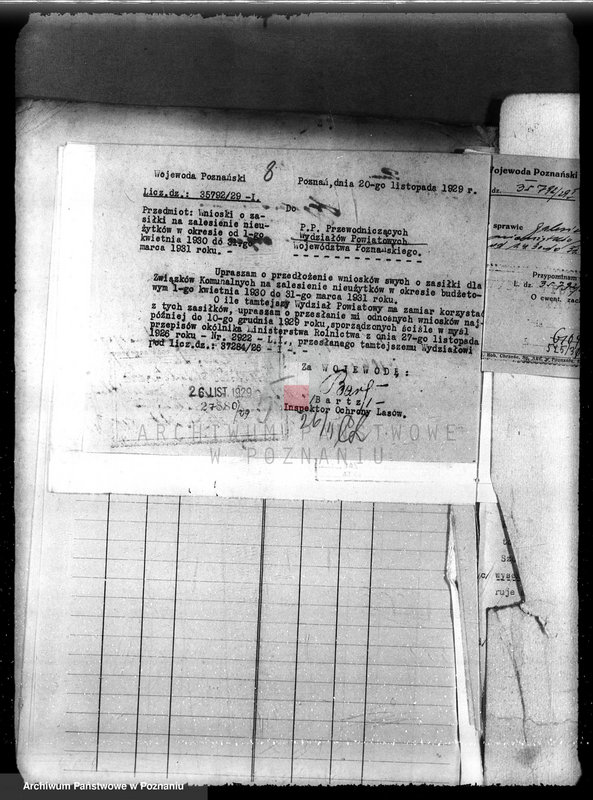 Wojewoda Poznański
8
Poznań, dnia 20-go listopada 1929 r.
Licz.dz.: 35792/29 -I.
Do
Przedmiot: Wnioski o za-
siłki na zalesienie nieu-
żytków w okresie od 1-go
kwietnia 1930 do 31-go
marca 1931 roku. -
P.P. Przewodniczących
Wydziałów Powiatowych
Województwa Poznańskiego.
Upraszam o przedłożenie wniosków swych o zasiłki dla
Związków Komunalnych na zalesienie nieużytków w okresie budżeto-
wym 1-go kwietnia 1930 do 31-go marca 1931 roku.
O ile tamtejszy Wydział Powiatowy ma zamiar korzystać
z tych zasiłków, upraszam o przesłanie mi odnośnych wniosków naj-
później do 10-go grudnia 1929 roku, sporządzonych ściśle w myśl
przepisów okólnika Ministerstwa Rolnictwa z dnia 27-go listopada
1926 roku - Nr. 2922 - L.I., przesłanego tamtejszemu Wydziałowi
pod licz.dz.: 37284/26 - I -. -
Za WOJEWODĘ:
/Bartz/-
Inspektor Ochrony Lasów.
26 LIST. 1929
26/11
Wojewoda Poznański
dz. 35792/29 I
sprawie
Przypominam
L. dz.
O ewent. zach
wyse
ruje
ARCHIWUM PAŃSTWOWE
W POZNANIU
Archiwum Państwowe w Poznaniu